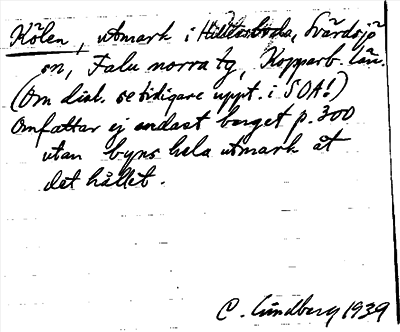 Kölen, utmark i Hillersboda, Svärdsjö
sn, Falu norra tg, Kopparb. län.
(Om dial. se tidigare uppt. i SOA!)
Omfattar ej endast berget p. 300
utan byns hela utmark åt
det hållet.
C. Lindberg 1939